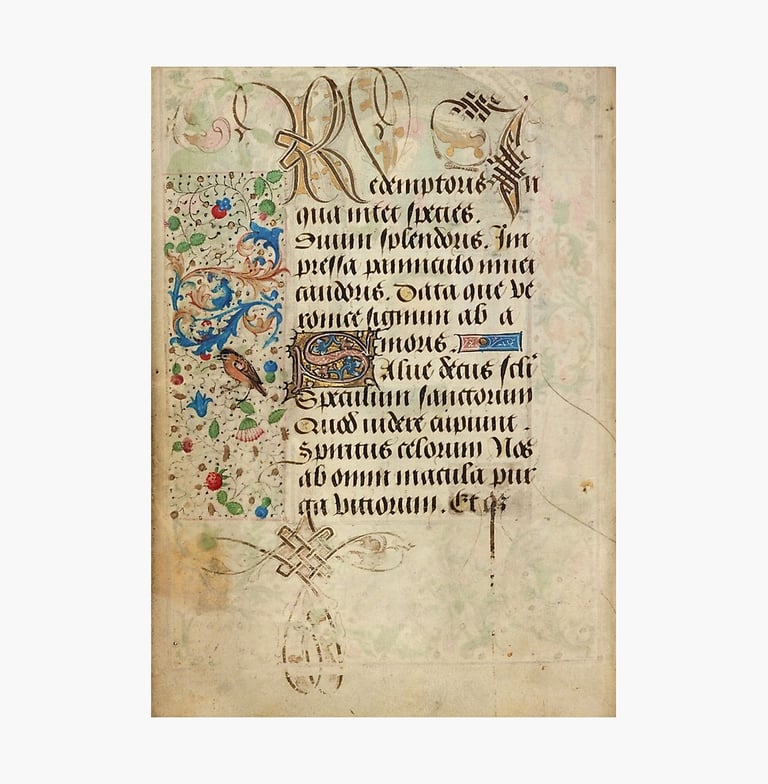 Redemptoris In
qua nitet species.
Diuini splendoris. Im
pressa panniculo niuei
candoris. Data que ve
ronice signum ob a
moris.
Salue decus scli
Speculum sanctorum
Quod videre cupiunt.
Spiritus celorum Nos
ab omni macula pur
ga viciorum. Et